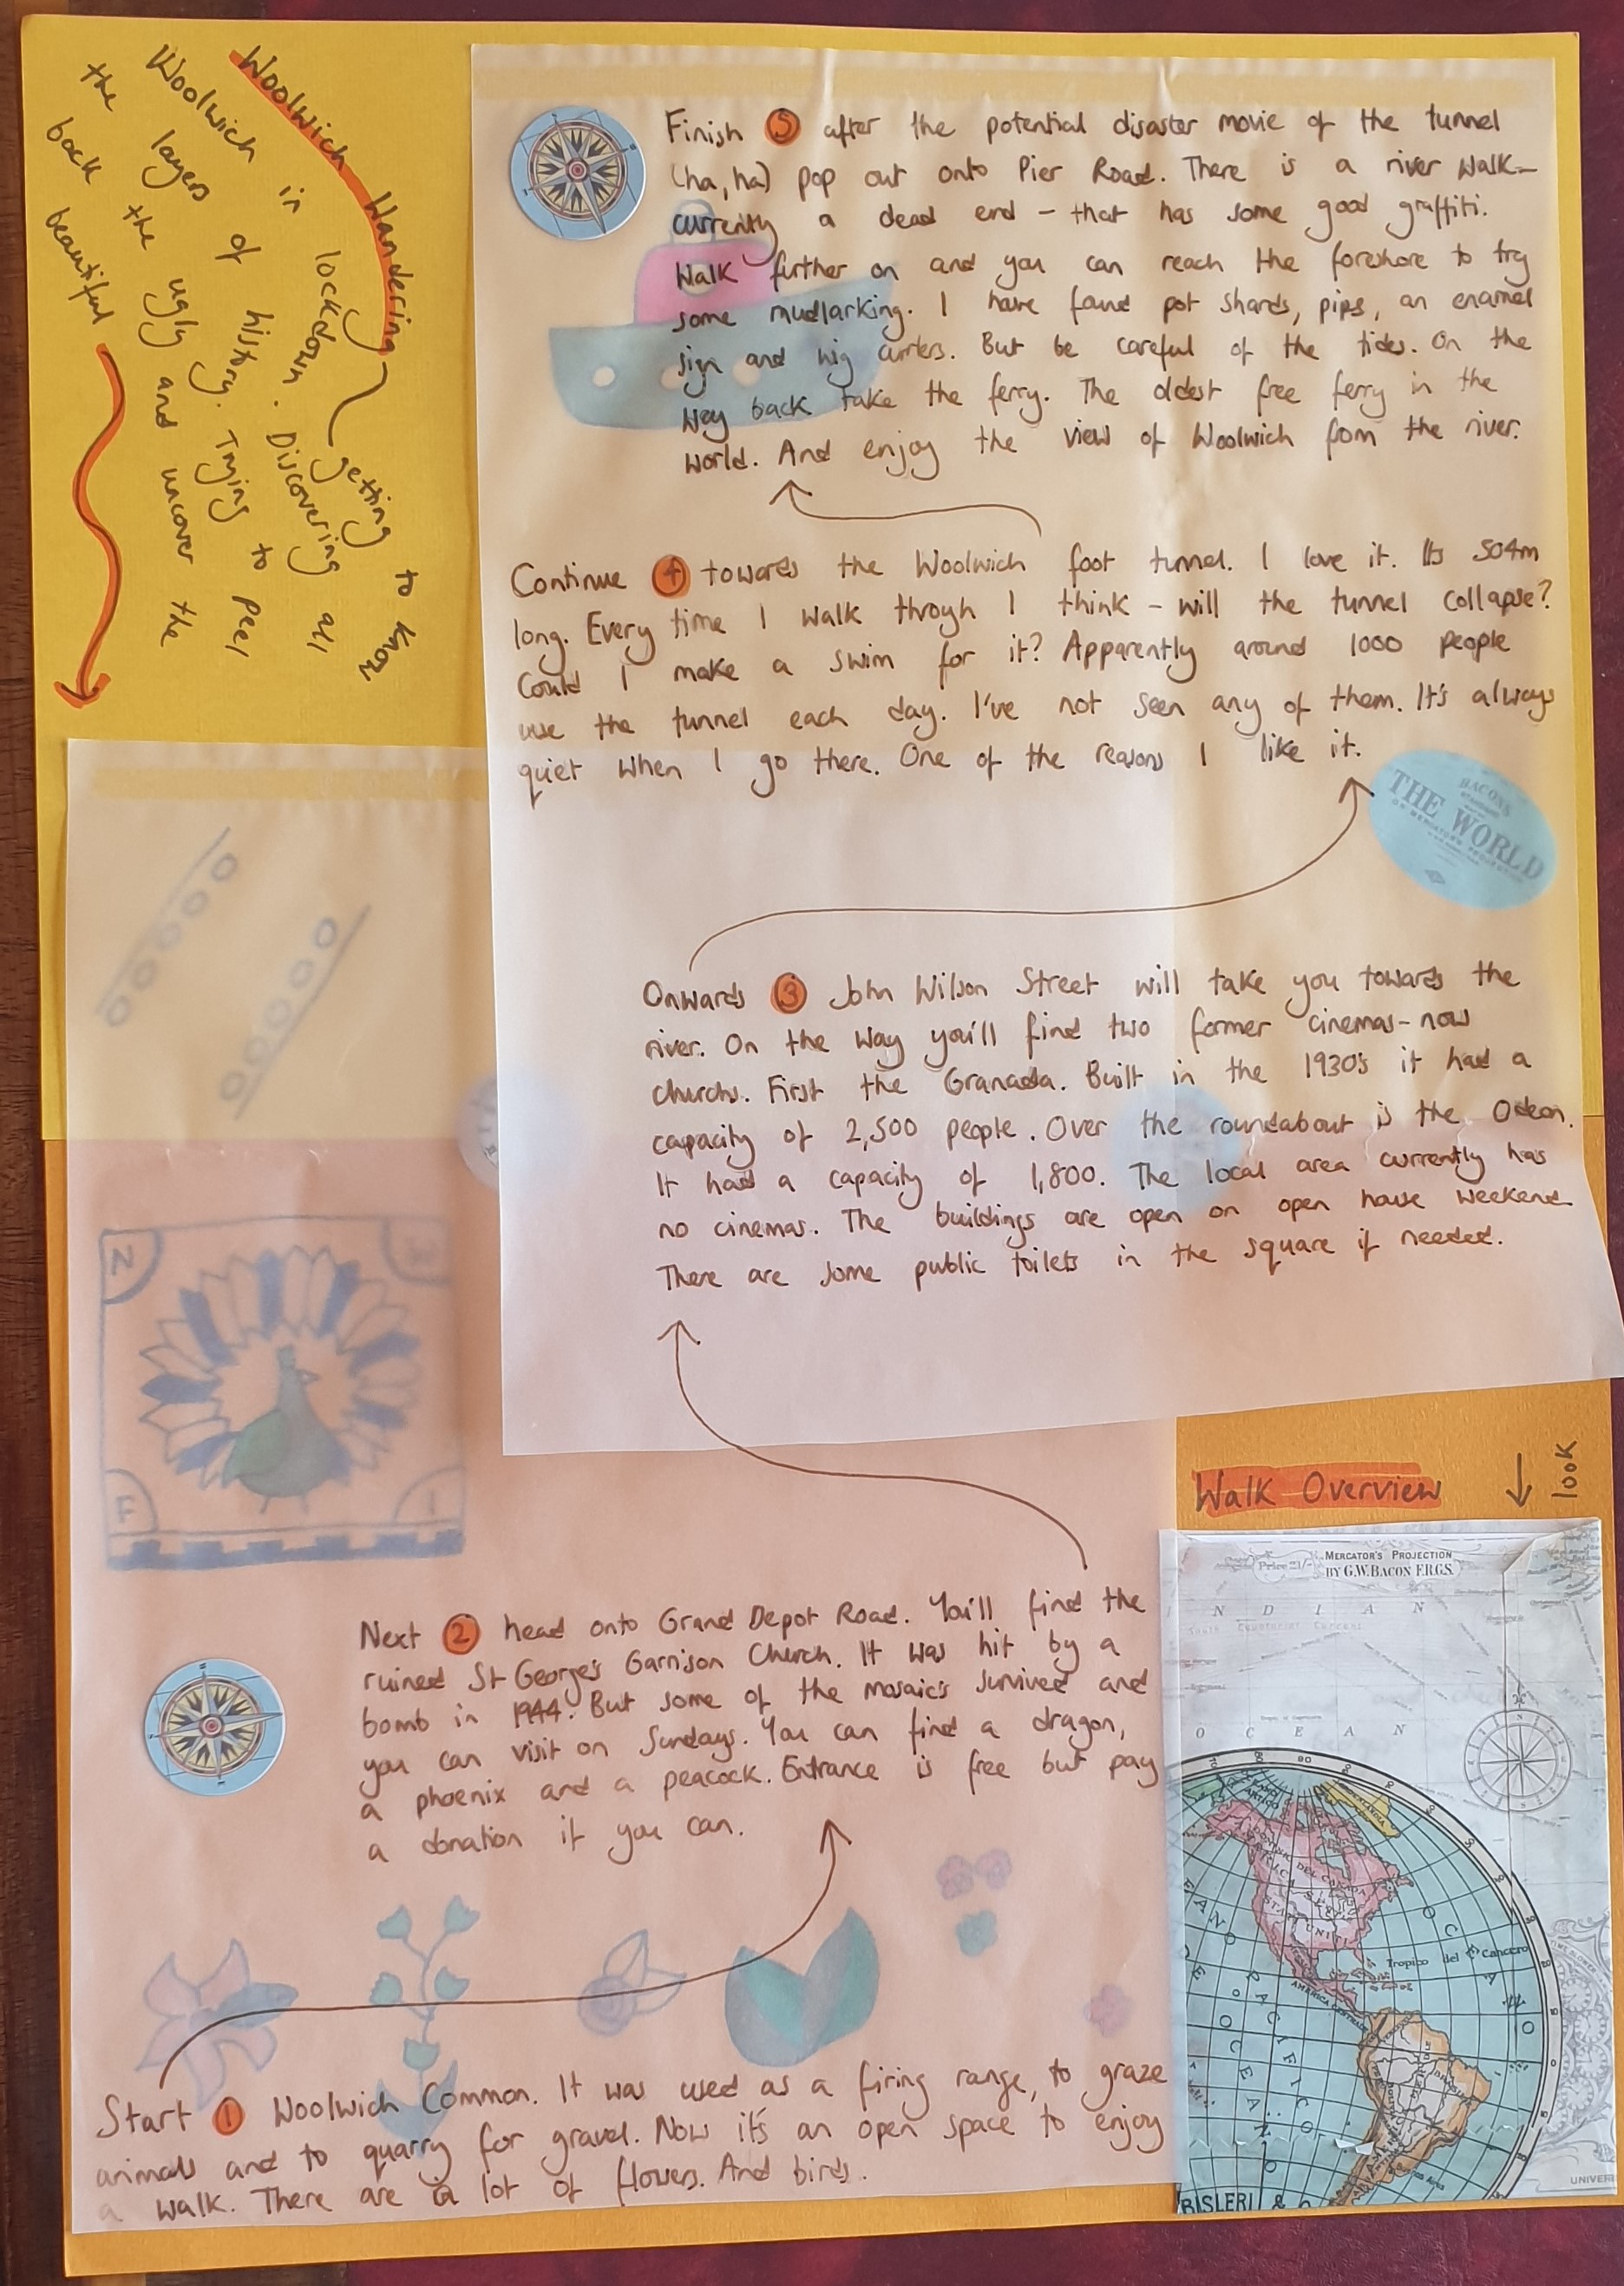 Woolwich Wandering
getting to know
Woolwich in lockdown. Discovering all
the layers of history. Trying to peel
back the ugly and uncover the
beautiful
Finish 5 after the potential disaster movie of the tunnel
(ha, ha) pop out onto Pier Road. There is a river walk -
currently a dead end - that has some good graffiti.
Walk further on and you can reach the foreshore to try
some mudlarking. I have found pot shards, pips, an enamel
sign and wig curlers. But be careful of the tides. On the
way back take the ferry. The oldest free ferry in the
world. And enjoy the view of Woolwich from the river.
Continue 4 towards the Woolwich foot tunnel. I love it. Its 504m
long. Every time I walk throgh I think - will the tunnel collapse?
Could I make a swim for it? Apparently around 1000 people
use the tunnel each day. I've not seen any of them. It's always
quiet when I go there. One of the reasons I like it.
BACON'S
THE WORLD
Onwards 3 John Wilson Street will take you towards the
river. On the way you'll find two former cinemas - now
churchs. First the Granada. Built in the 1930's it had a
capacity of 2,500 people. Over the roundabout is the Odeon.
It had a capacity of 1,800. The local area currently has
no cinemas. The buildings are open on open house weekend
There are some public toilets in the square if needed.
N
F
I
Walk Overview
look
Next 2 head onto Grand Depot Road. You'll find the
ruined St George's Garrison Church. It was hit by a
bomb in 1944. But some of the mosaics survived and
you can visit on Sundays. You can find a dragon,
a phoenix and a peacock. Entrance is free but pay
a donation if you can.
Start 1 Woolwich Common. It was used as a firing range, to graze
animals and to quarry for gravel. Now it's an open space to enjoy
a walk. There are a lot of flowers. And birds.
MERCATOR'S PROJECTION
BY G.W. BACON F.R.G.S.
Price 21/-
N D I A N
South Equatorial Current
O C E A N
STATI UNITI
AMERICA CENTRALE
Tropico del Cancro
BRASILE
OCEANO PACIFICO
BISLERI &
UNIVER